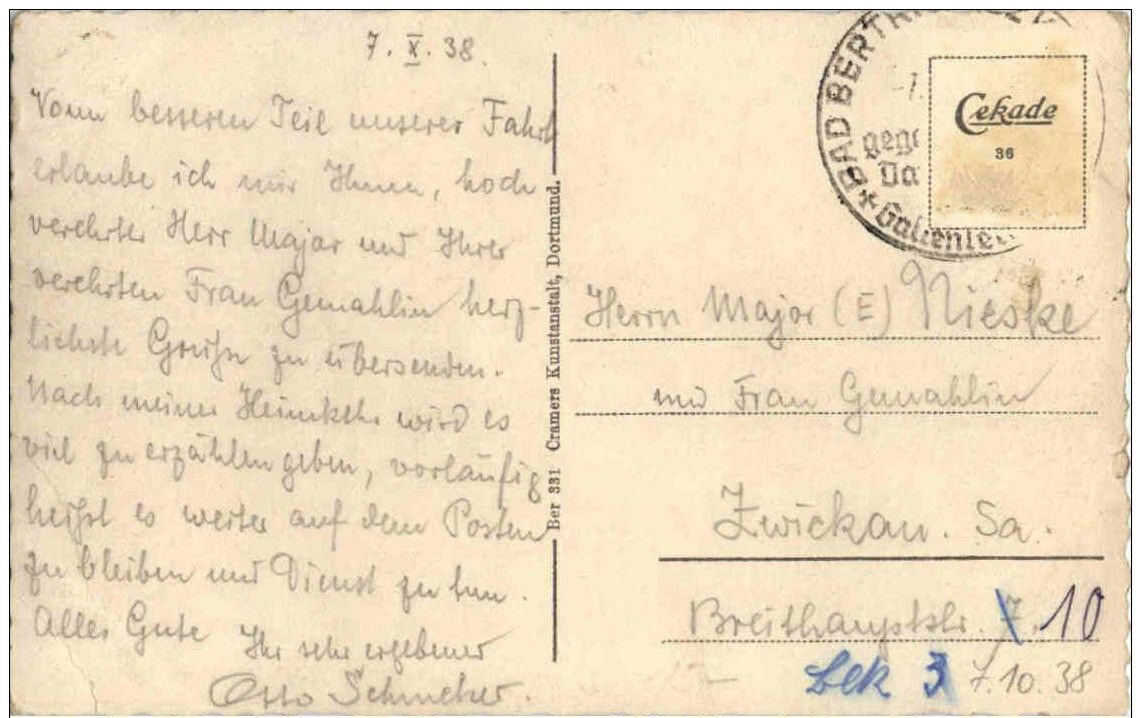 7. X. 38.
Vom besseren Teil unserer Fahrt
erlaube ich mir Ihnen, hoch
verehrter Herr Major und Ihrer
verehrten Frau Gemahlin herz-
lichste Grüße zu übersenden.
Nach meiner Heimkehr wird es
viel zu erzählen geben, vorläufig
heißt es weiter auf dem Posten
zu bleiben und Dienst zu tun.
Alles Gute
Ihr sehr ergebener
Otto
Ber 331 Cramers Kunstanstalt, Dortmund.
BAD BERTRICH
Cekade
36
Herrn Major (E) Nieske
und Frau Gemahlin
Zwickau. Sa.
Breithauptstr. 7. 10
3 7.10.38